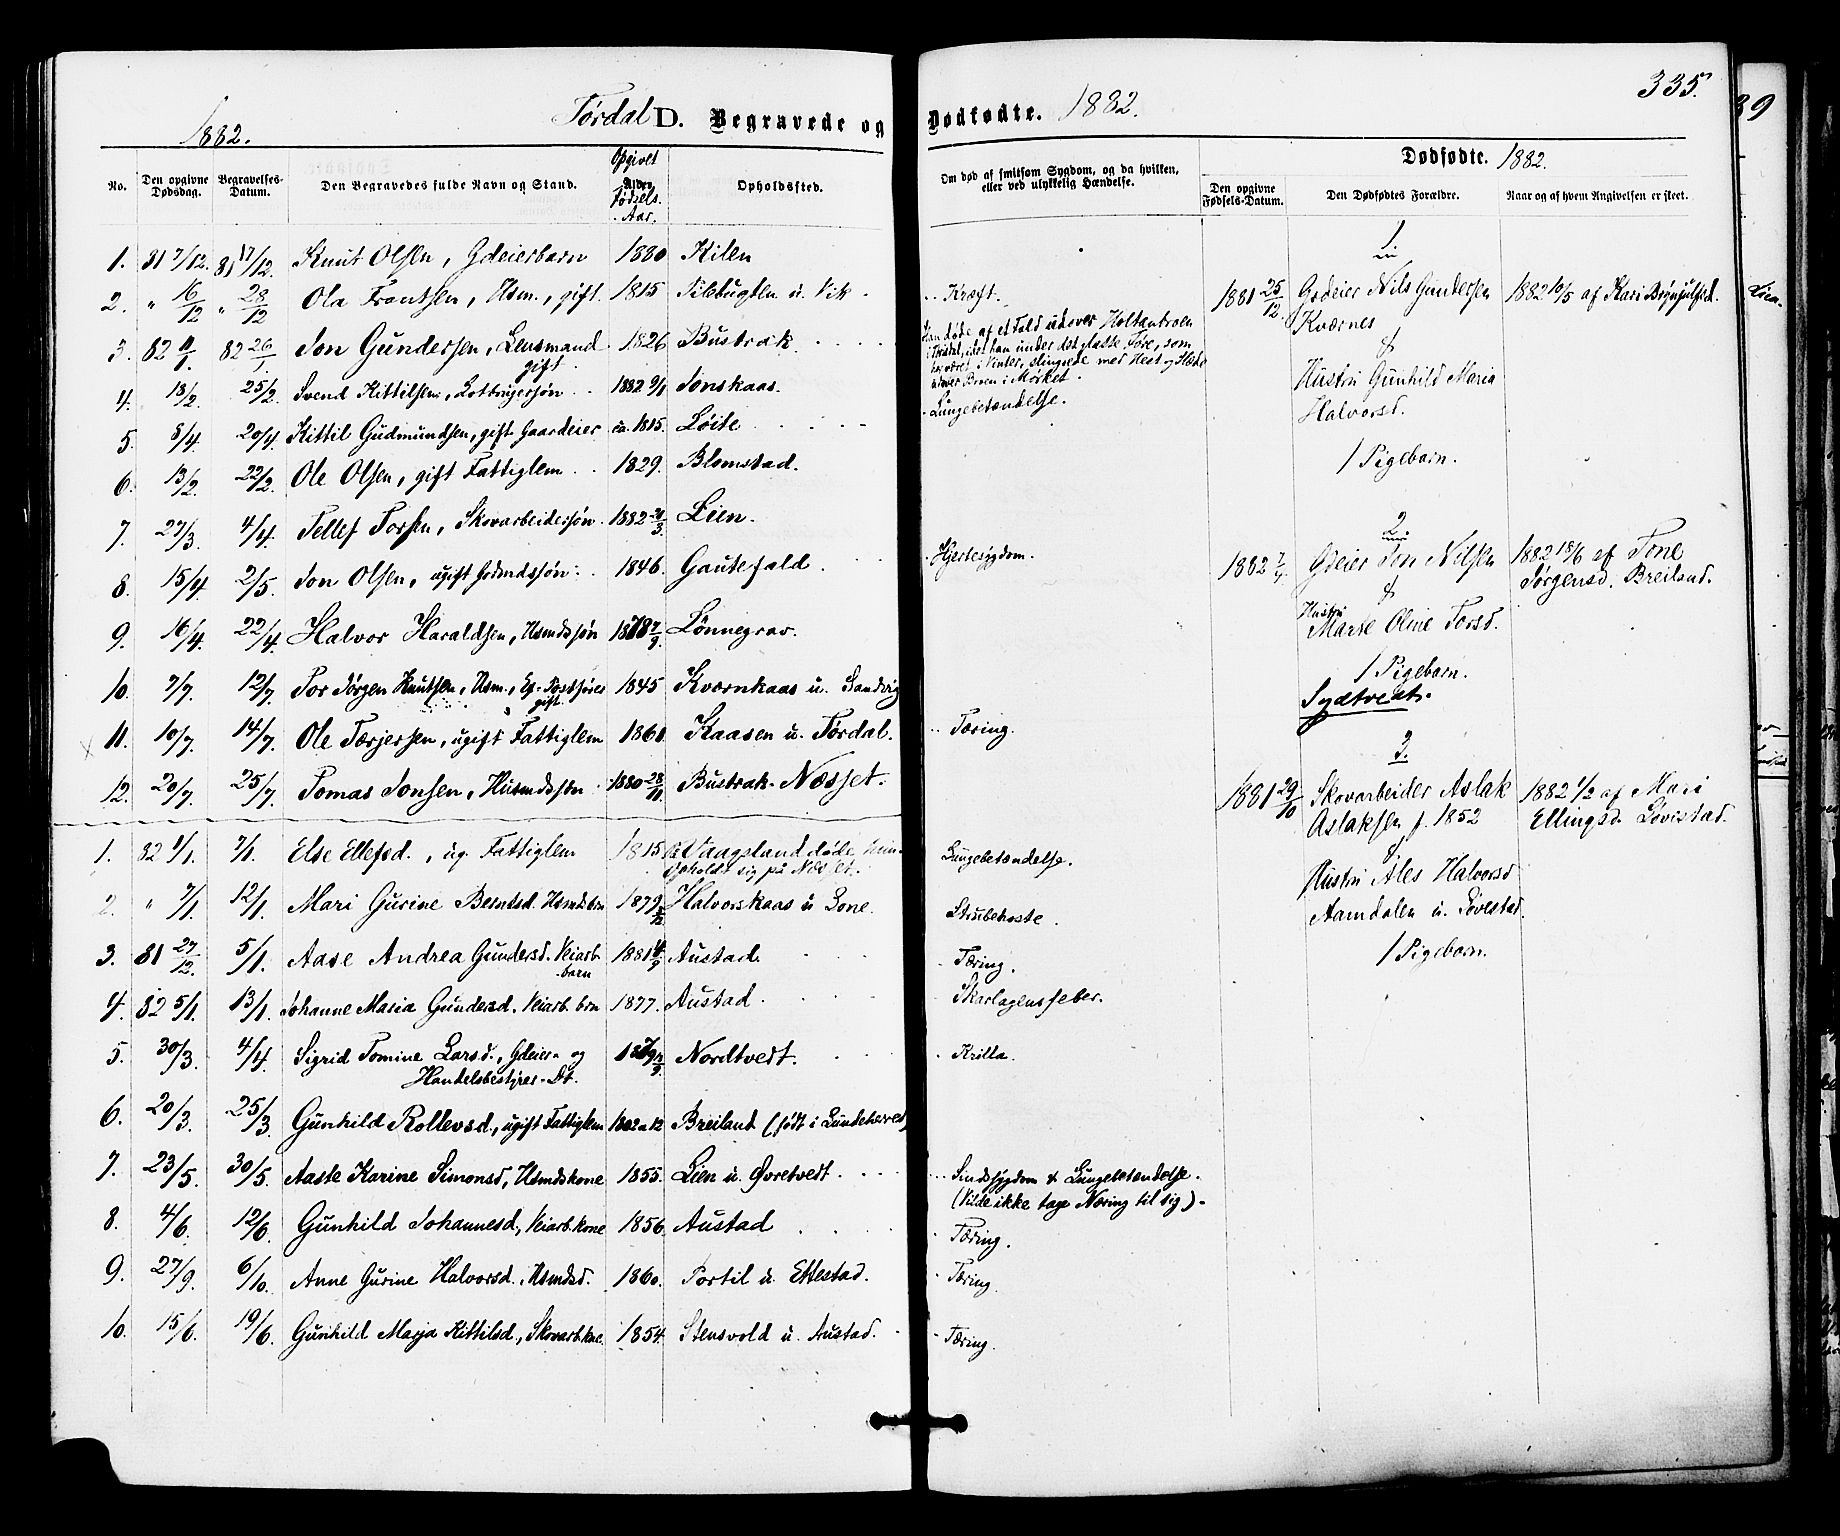 Tørdal D. Begravede og Dødfødte. 1882.
335.
1882.
No.
Den opgivne Dødsdag.
Begravelses-Datum.
Den Begravedes fulde Navn og Stand.
Opgivet Alder Fødsels-Aar.
Opholdssted.
Om død af smitsom Sygdom, og da hvilken, eller ved ulykkelig Hændelse.
Dødfødte. 1882.
Den opgivne Fødsels-Datum.
Den Dødfødtes Forældre.
Naar og af hvem Angivelsen er skeet.
1. 81 7/12. 81 17/12. Knut Olsen, Gdeierbarn 1880 Kilen
2. " 16/12 " 28/12 Ola Frantsen, Husm., gift. 1815 Silebugten u. Vik. Kræft.
3. 82 82 26/1. Jon Gundersen, Lensmand gift. 1826 Bustrak.
Han døde af et Fald udover Holtanbroen
i Tørdal, idet han under det glatte Føre, som
har været i Vinter, slingrede med Hest og Slæde
udover Broen i Mørket.
4. 18/2. 25/2. Svend Kittilsen, 1882 9/1 Jonskaas. Lungebetændelse.
5. 8/4. 20/4. Kittil Gudmundsen, gift Gaardeier ca. 1815. Løite
6. 13/2. 22/2. Ole Olsen, gift Fattiglem 1829. Blomstad.
7. 27/3. 4/4. Tellef Torsen, Skovarbeidersøn. 1882 Lien.
8. 15/4. 2/5. Jon Olsen, ugift Gdmdssøn. 1846. Gautefald. Hjertesygdom.
9. 16/4. 22/4. Halvor Haraldsen, Husmdssøn 1878 7/9. Lønnegrav.
10. 7/7. 12/7. Tor Jørgen Knutsen, Husm., gift. 1845 Kvørnkaas u. Sandvig
11. 10/7. 14/7. Ole Tærjersen, ugift Fattiglem 1861. Kaasen u. Tørdal. Tæring.
12. 20/7. 25/7. Tomas Jonsen, Husmdssøn 1880 28/11. Bustrak. Næsset.
1. 82 1/1. 7/1. Else Ellefsd., ug. Fattiglem 1815 Vaagsland døde, men
opholdt sig på Næsset. Lungebetændelse.
2. " 7/1. 12/1. Mari Gurine Berntsd. Husmdsbrn 1879 Halvorskaas u Sone. Strubehoste.
3. 81 27/12. 5/1. Aase Andrea Gundersd. Veiarb.barn 1881 4/9 Austad. Tæring.
4. 82 5/1. 13/1. Johanne Maria Gundersd. Veiarb. brn 1877. Austad. Skarlagensfeber.
5. 30/3. 4/4. Sigrid Tomine Larsd., Gdeier- og
Handelsbestyrer-Dt. Nordtvedt. Krilla.
6. 20/3. 25/3. Gunhild Rollevsd., ugift Fattiglem 1802 a 12 Breiland (født i Lundeherred)
7. 23/5. 30/5. Aaste Karine Simonsd, Husmdskone 1855. Lien u. Øvretvedt. Sindssygdom & Lungebetændelse.
(Vilde ikke tage Næring til sig).
8. 4/6. 12/6. Gunhild Johannesd., Veiarb.kone 1856. Austad Tæring.
9. 27/9. 6/10. Anne Gurine Halvorsd., Husmdsd. 1860. Portil u. Ettestad. Tæring.
10. 15/6. 19/6. Gunhild Marja Kittilsd., Skovarb.kne. 1854. Stensvold u. Austad. Tæring.
1
1881 25/12. Grdeier Nils Gundersen 1882 10/5 af Kari Brynjulfsd.
Kværnes
&
Hustru Gunhild Maria
Halvorsd.
1 Pigebarn.
2
1882 7/4. Gdeier Jon Nilsen 1882 18/6 af Tone
& Jørgensd. Breiland.
Hustru
Marte Oline Torsd.
1 Pigebarn.
Sydtvedt.
3.
1881 29/10 Skovarbeider Aslak 1882 1/2 af Mari
Aslaksen f. 1852 Ellingsd. Løvistad.
&
Hustru Ales Halvorsd
Aamdalen u. Løvestad.
1 Pigebarn.
39
Lien.